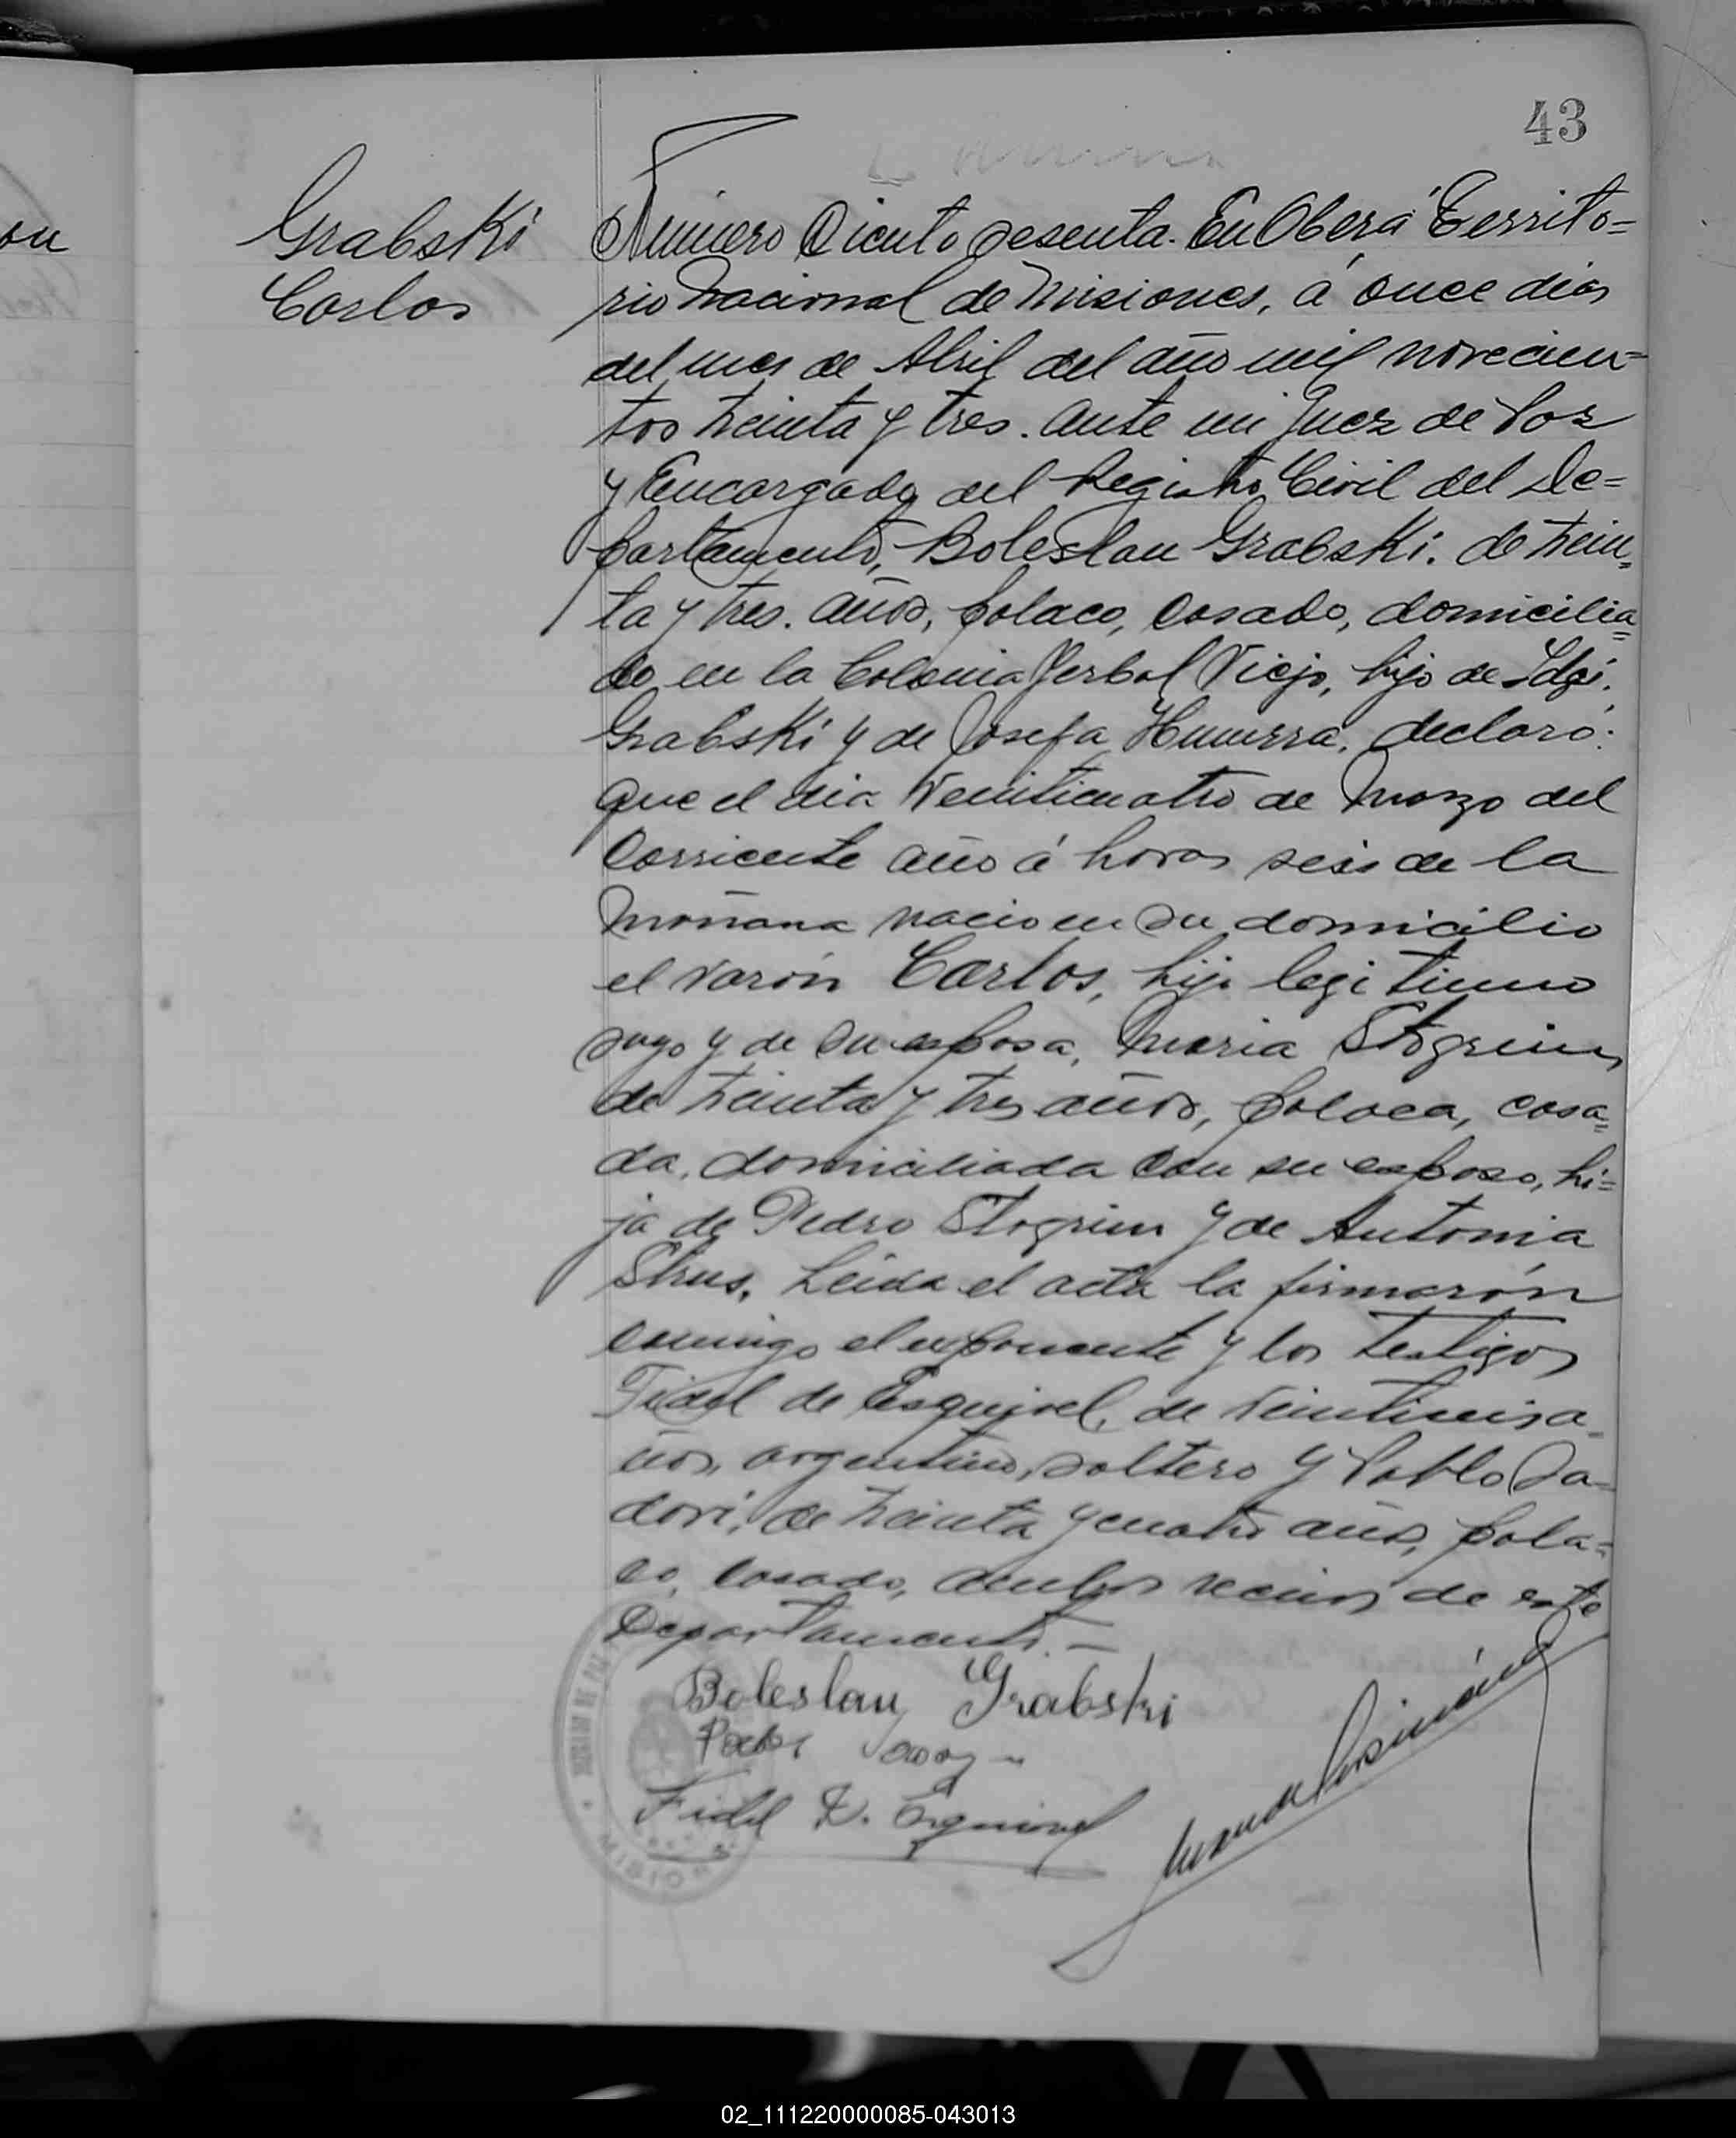 43
Grabski
Carlos
Número Ciento sesenta. En Oberá Territo=
rio Nacional de Misiones, á once dias
del mes de Abril del año mil novecien=
tos treinta y tres. Ante mi Juez de Paz
y Encargado del Registro Civil del De=
partamento, Boleslau Grabski. de trein=
ta y tres. años, polaco, casado, domicilia=
do en la Colonia Yerbal Viejo, hijo de
Grabski y de Josefa declaró:
que el dia veinticuatro de Marzo del
corriente año á horas seis de la
mañana nacio en su domicilio
el varón Carlos, hijo legitimo
suyo y de su esposa, Maria Stogrim
de treinta y tres años, polaca, casa=
da, domiciliada con su esposo, hi=
ja de Pedro Stogrim y de Antonia
Strus. Leida el acta la firmarón
conmigo el exponente y los testigos
Fidel de Esquivel, de veintiseis a=
ños, argentino, soltero y Pablo Sa=
dori, de treinta y cuatro años, pola=
co, casado, ambos vecinos de este
Departamento. —
Boleslau Grabski
Fidel D. Esquivel
MISIONES
02_111220000085-043013